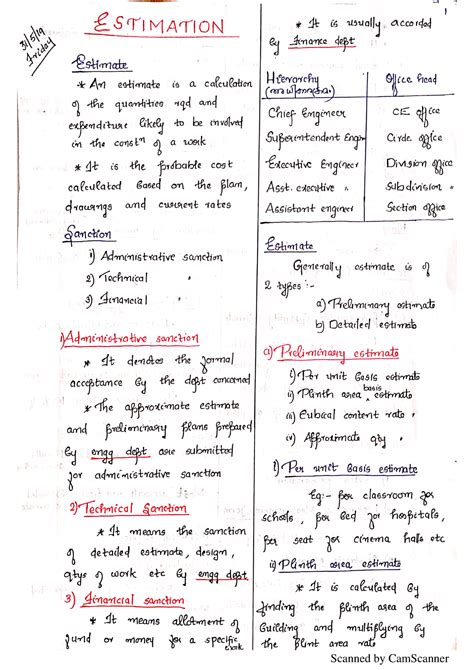 31/5/19
Friday
ESTIMATION
Estimate
* An estimate is a calculation
of the quantities rqd and
expenditure likely to be involved
in the constn of a work
* It is the probable cost
calculated based on the plan,
drawings and current rates
Sanction
1) Administrative sanction
2) Technical "
3) Financial "
1) Administrative sanction
* It denotes the formal
acceptance by the dept concerned
* The approximate estimate
and preliminary plans prepared
by engg dept are submitted
for administrative sanction
2) Technical Sanction
* It means the sanction
of detailed estimate, design,
qtys of work etc by engg dept
3) Financial sanction
* It means allotment of
fund or money for a specific
work
1
* It is usually accorded
by Finance dept
Hierarchy Office head
Chief Engineer CE office
Superintendent Engr Circle office
Executive Engineer Division office
Asst. executive " Subdivision "
Assistant engineer Section office
Estimate
Generally estimate is of
2 types :-
a) Preliminary estimate
b) Detailed estimate
a) Preliminary estimate
i) Per unit basis estimate
ii) Plinth area basis estimate
iii) Cubical content rate "
iv) Approximate qty "
i) Per unit basis estimate
Eg:- per classroom for
schools, per bed for hospitals,
per seat for cinema halls etc
ii) Plinth area estimate
* It is calculated by
finding the plinth area of the
building and multiplying by
the plint area rate
Scanned by CamScanner